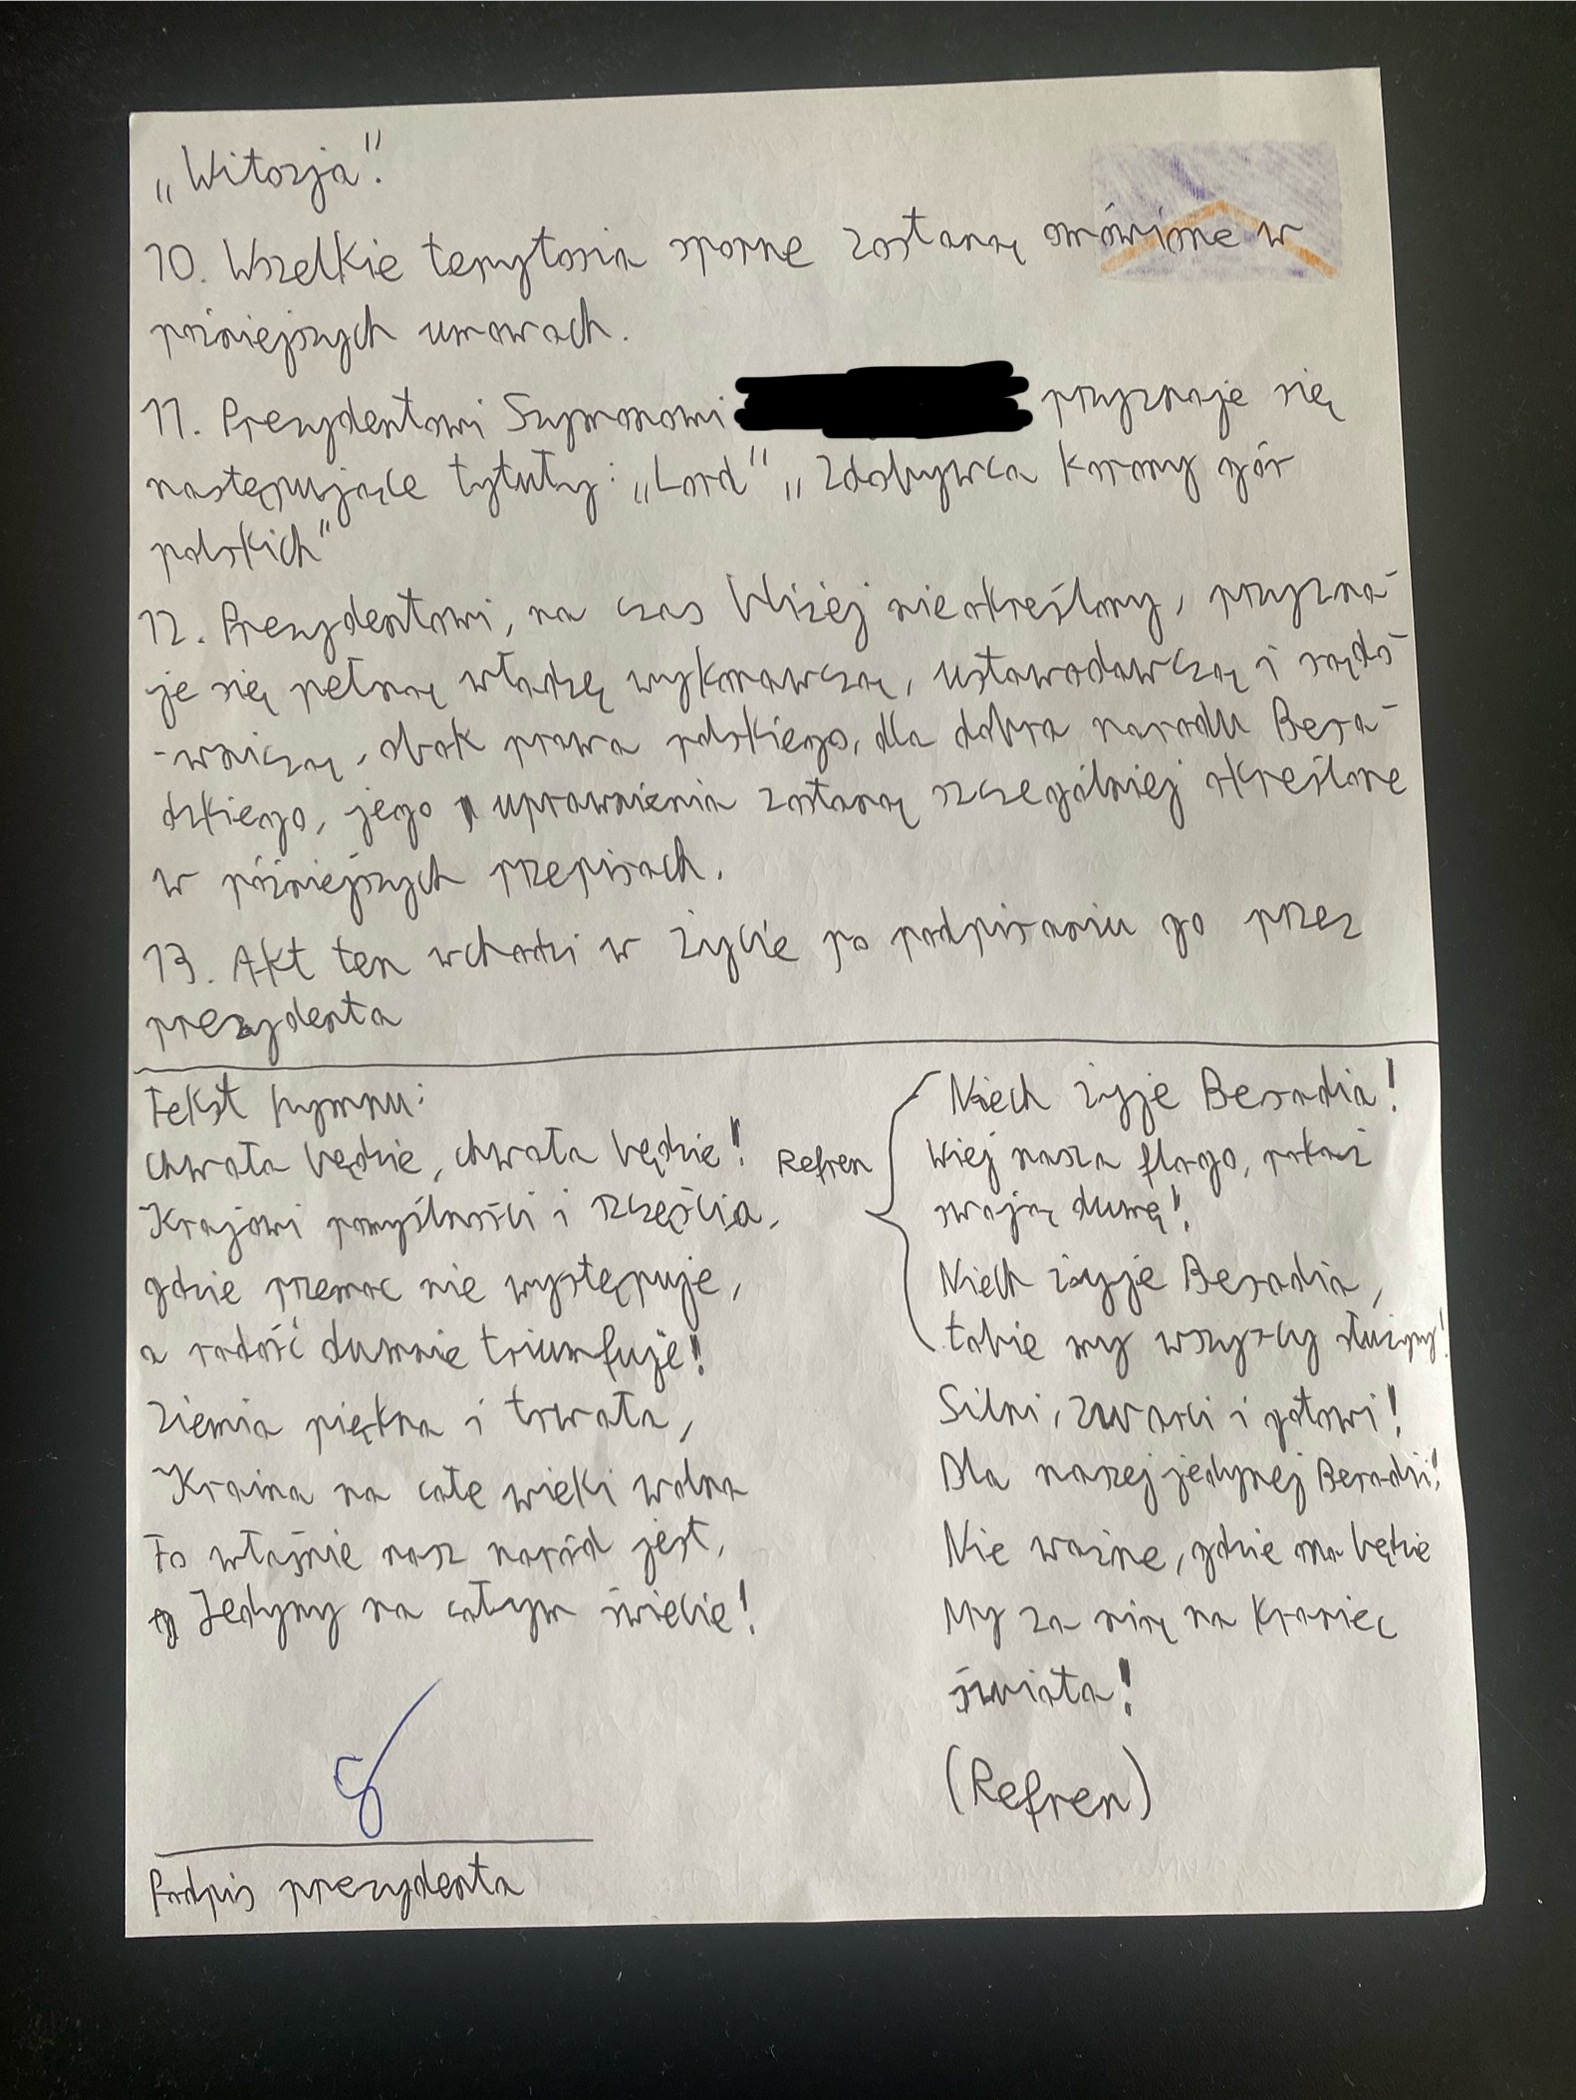 „Witozja".
10. Wszelkie terytoria sporne zostaną omówione w
późniejszych umowach.
11. Prezydentowi Szymonowi przyznaje się
następujące tytuły: „Lord" „Zdobywca Korony gór
polskich"
12. Prezydentowi, na czas bliżej nieokreślony, przyzna-
je się pełną władzę wykonawczą, ustawodawczą i sądo-
-wniczą, obok prawa polskiego, dla dobra narodu Besa-
dzkiego, jego uprawnienia zostaną szczególniej określone
w późniejszych przepisach.
13. Akt ten wchodzi w życie po podpisaniu go przez
prezydenta
Tekst hymnu:
Chwała będzie, chwała będzie!
Krajowi pomyślności i szczęścia,
gdzie przemoc nie występuje,
a radość dumnie triumfuje!
Ziemia piękna i trwała,
Kraina na całe wieki wolna
To właśnie nasz naród jest,
Jedyny na całym świecie!
Refren
Niech żyje Besadia!
Wiej nasza flago, pokaż
swoją dumę!
Niech żyje Besadia,
tobie my wszyscy służymy!
Silni, zwarci i gotowi!
Dla naszej jedynej Besadii!
Nie ważne, gdzie ona będzie
My za nią na Kraniec
świata!
(Refren)
Podpis prezydenta